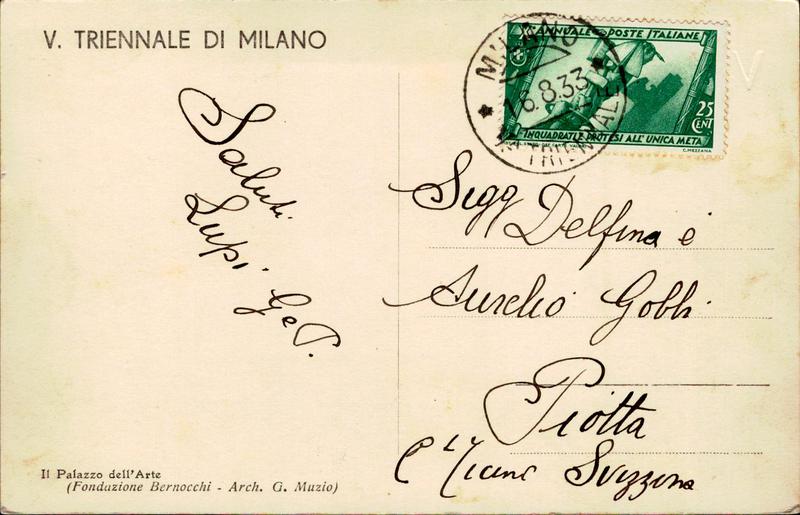 V. TRIENNALE DI MILANO
X ANNUALE POSTE ITALIANE
25 CENT
INQUADRATI E PROTESI ALL'UNICA META
C. MEZZANA
MILANO
16.8.33
TRIENNALE
V
Saluti
Lupi G e P.
Sigg Delfina e
Aurelio Gobbi
Piotta
Svizzera
Il Palazzo dell'Arte
(Fondazione Bernocchi - Arch. G. Muzio)